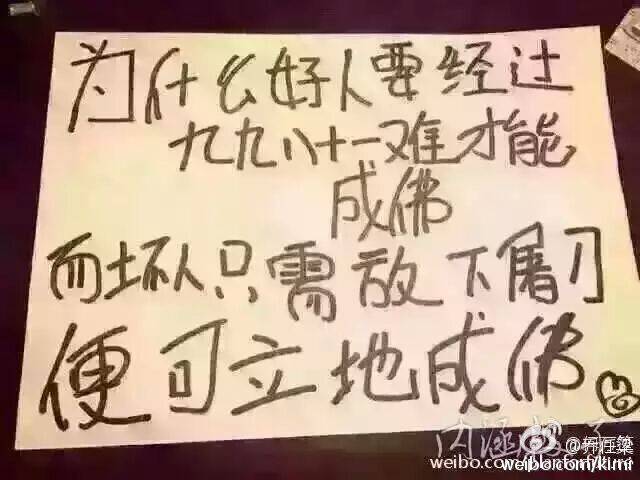 为什么好人要经过
九九八十一难才能
成佛
而坏人只需放下屠刀
便可立地成佛
内涵段子
weibo.com/kimi